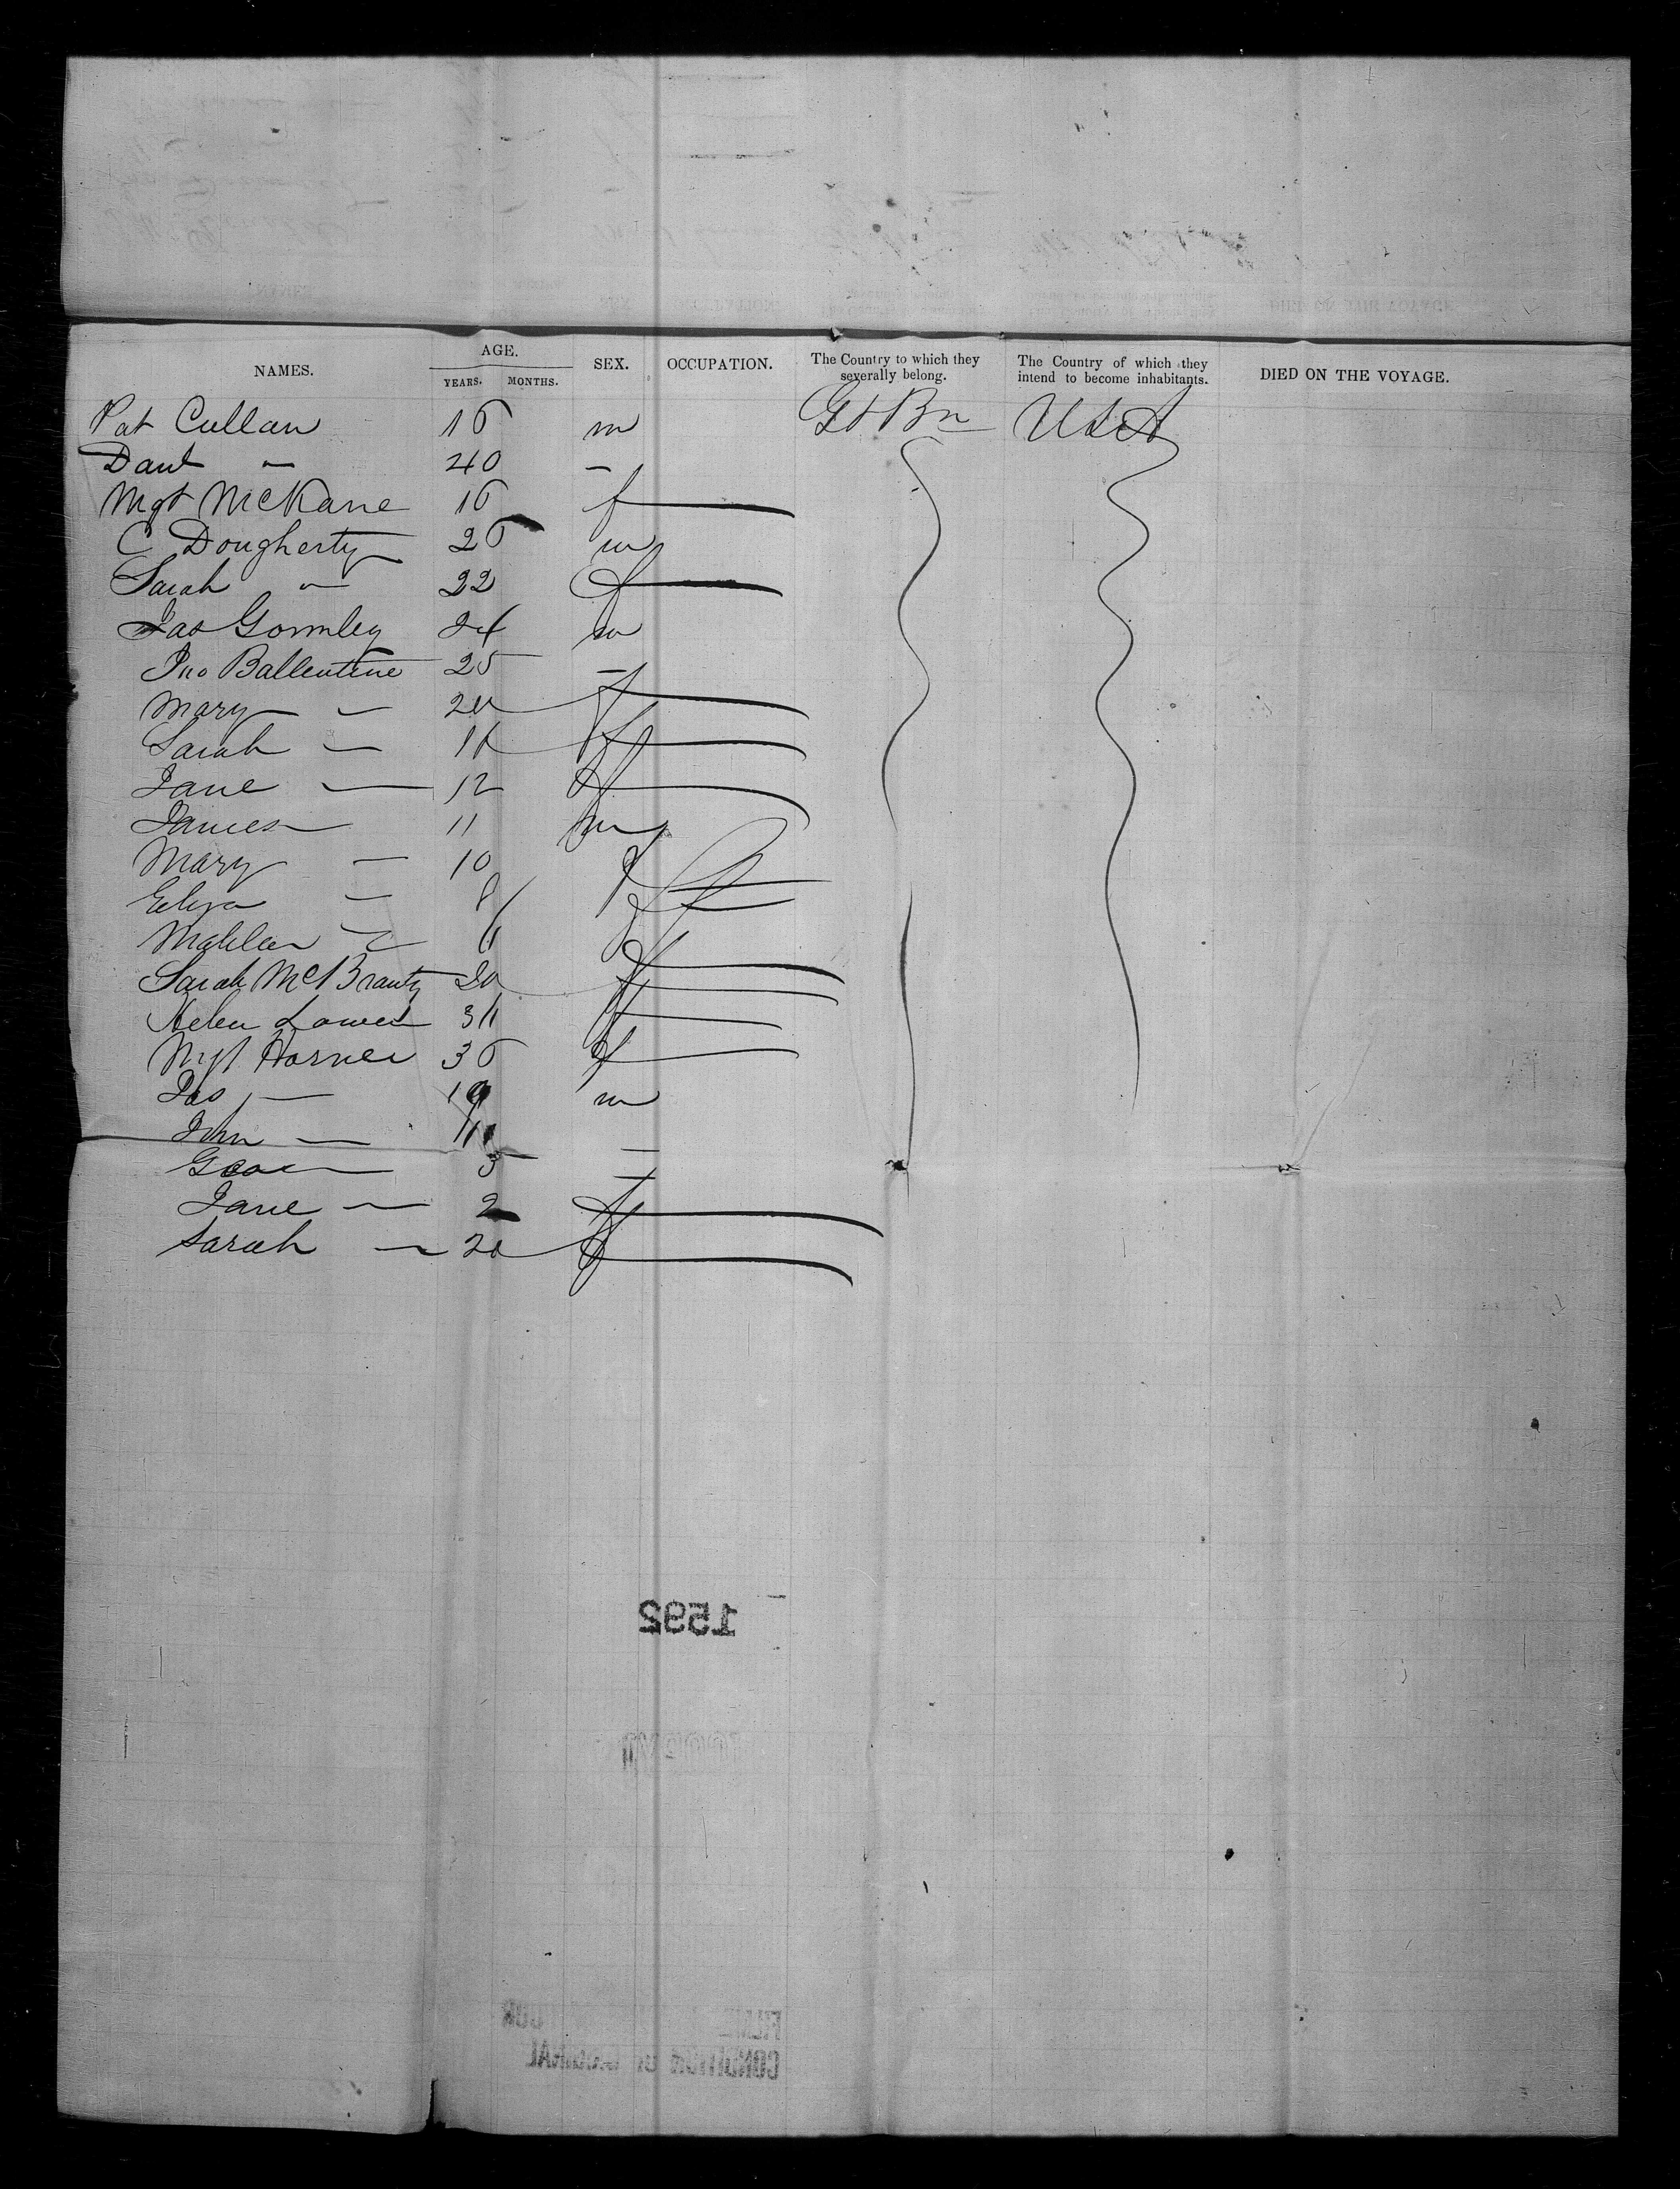 NAMES. AGE. YEARS. MONTHS. SEX. OCCUPATION. The Country to which they severally belong. The Country of which they intend to become inhabitants. DIED ON THE VOYAGE.
Pat Cullan 16 m Gt Bn USA
Danl — 40 —
Mgt McKane 16 f
C Dougherty 26 m
Sarah — 22 f
Jas Gormley 24 m
Jno Ballentine 25 —
Mary — 20 f
Sarah — f
Jane — 12 f
James — 11 m
Mary — 10 f
Eliza — 8 f
— f
Sarah McBranty 20 f
Helen f
Mgt Horner 36 f
Jas — m
John — —
— 5 —
Jane — 2 f
Sarah — 20 f
1592
CONDITION OF ORIGINAL